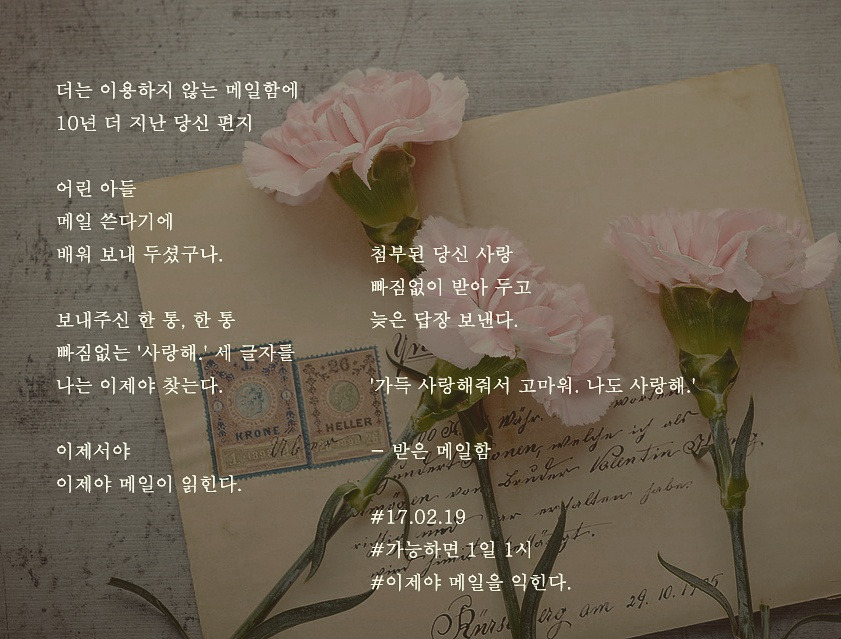 더는 이용하지 않는 메일함에
10년 더 지난 당신 편지
어린 아들
메일 쓴다기에
배워 보내 두셨구나.
보내주신 한 통, 한 통
빠짐없는 '사랑해.' 세 글자를
나는 이제야 찾는다.
이제서야
이제야 메일이 읽힌다.
첨부된 당신 사랑
빠짐없이 받아 두고
늦은 답장 보낸다.
'가득 사랑해줘서 고마워. 나도 사랑해.'
– 받은 메일함
#17.02.19
#가능하면 1일 1시
#이제야 메일을 읽힌다.
KRONE
HELLER
Währ.
welche ich als
von Bruder Valentin
erhalten habe.
am 29. 10. 1905